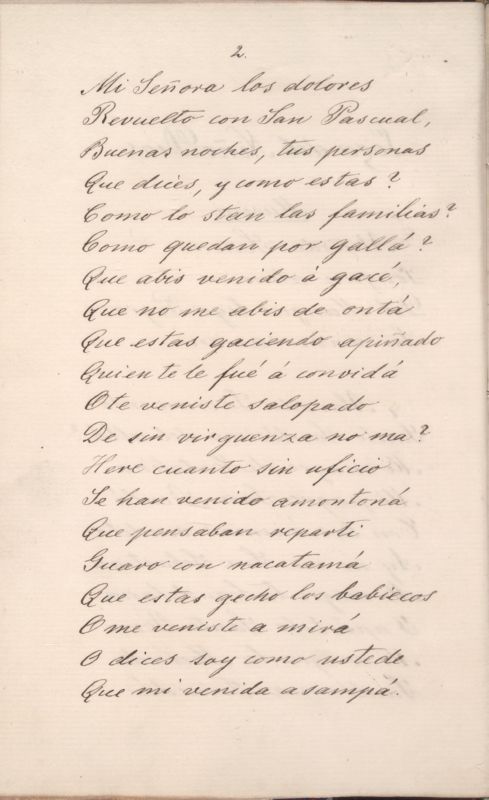 2.
Mi Señora los dolores
Revuelto con San Pascual,
Buenas noches, tus personas
Que dices, y como estas?
Como lo stan las familias?
Como quedan por gallá?
Que abis venido á gacé,
Que no me abis de ontá
Que estas gaciendo apiñado
Quien te le fué á convidá
O te veniste salopado
De sin virguenza no ma?
Here cuanto sin uficio
Se han venido amontoná
Que pensaban reparti
Guaro con nacatamá
Que estas gecho los babiecos
O me veniste a mirá
O dices soy como ustede
Que mi venida asampá.